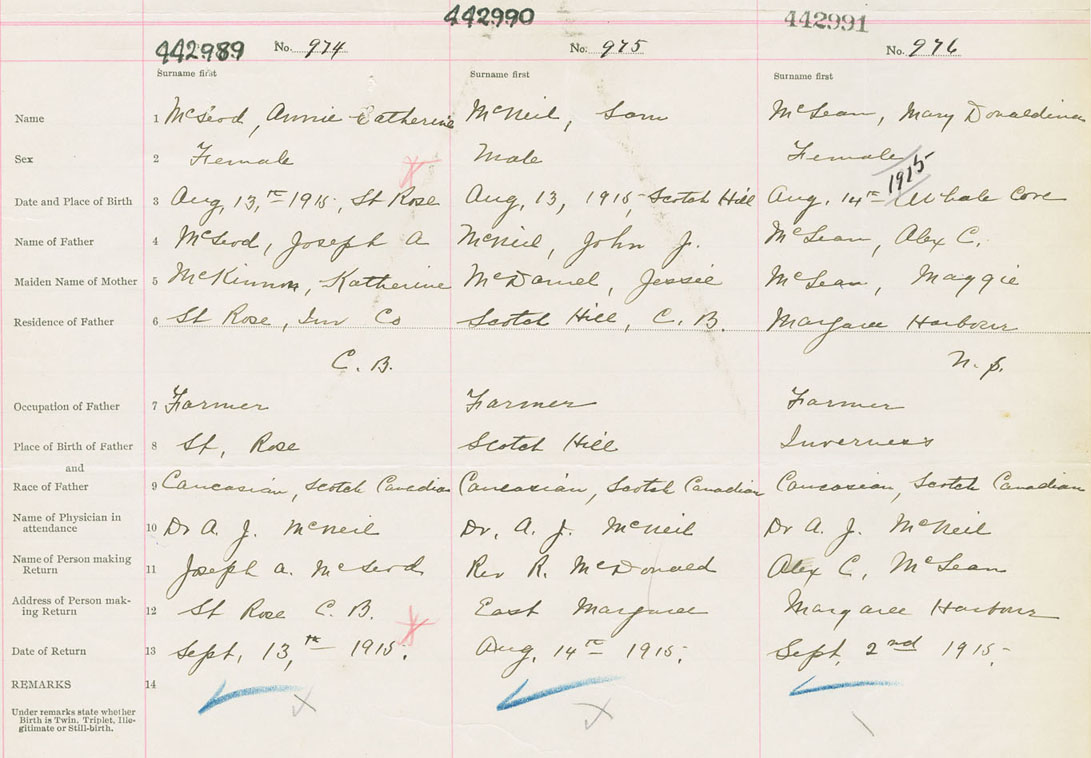 442989 442990 442991
No. 974 No. 975 No. 976
Surname first Surname first Surname first
Name 1 McLeod, Annie Catherine McNeil, Sam McLean, Mary Donaldina
Sex 2 Female Male Female
1915
Date and Place of Birth 3 Aug, 13,th 1915, St Rose Aug, 13, 1915, Scotch Hill Aug, 14th Whale Cove
Name of Father 4 McLeod, Joseph A McNeil, John J. McLean, Alex C.
Maiden Name of Mother 5 McKinnon, Katherine McDaniel, Jessie McLean, Maggie
Residence of Father 6 St Rose, Inv Co Scotch Hill, C. B. Margaree Harbour
C. B. N. S.
Occupation of Father 7 Farmer Farmer Farmer
Place of Birth of Father 8 St, Rose Scotch Hill Inverness
and
Race of Father 9 Caucasian, Scotch Canadian Caucasian, Scotch Canadian Caucasian, Scotch Canadian
Name of Physician in
attendance 10 Dr A. J. McNeil Dr, A. J. McNeil Dr A. J. McNeil
Name of Person making
Return 11 Joseph A. McLeod Rev R. McDonald Alex C, McLean
Address of Person mak-
ing Return 12 St Rose C. B. East Margaree Margaree Harbour
Date of Return 13 Sept, 13,th 1915. Aug, 14th 1915. Sept, 2nd 1915.
REMARKS 14
Under remarks state whether
Birth is Twin, Triplet, Ille-
gitimate or Still-birth.